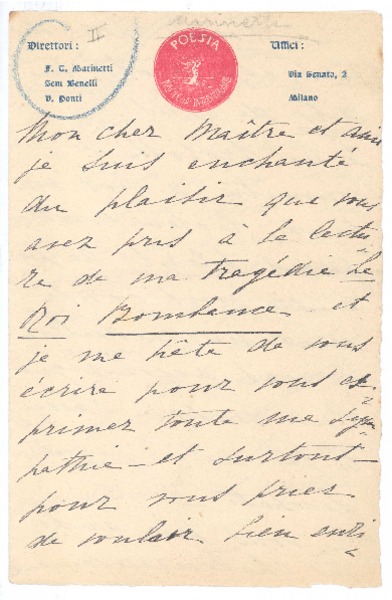 II
Marinetti
Direttori :
F. T. Marinetti
Sem Benelli
V. Ponti
POESIA
Uffici :
Via Senato, 2
Milano
Mon cher Maître et ami
je suis enchanté
du plaisir que vous
avez pris à la lectu
re de ma tragédie Le
Roi Bombance et
je me hâte de vous
écrire pour vous ex-
primer toute ma sym
pathie – et surtout –
pour vous prier
de vouloir bien